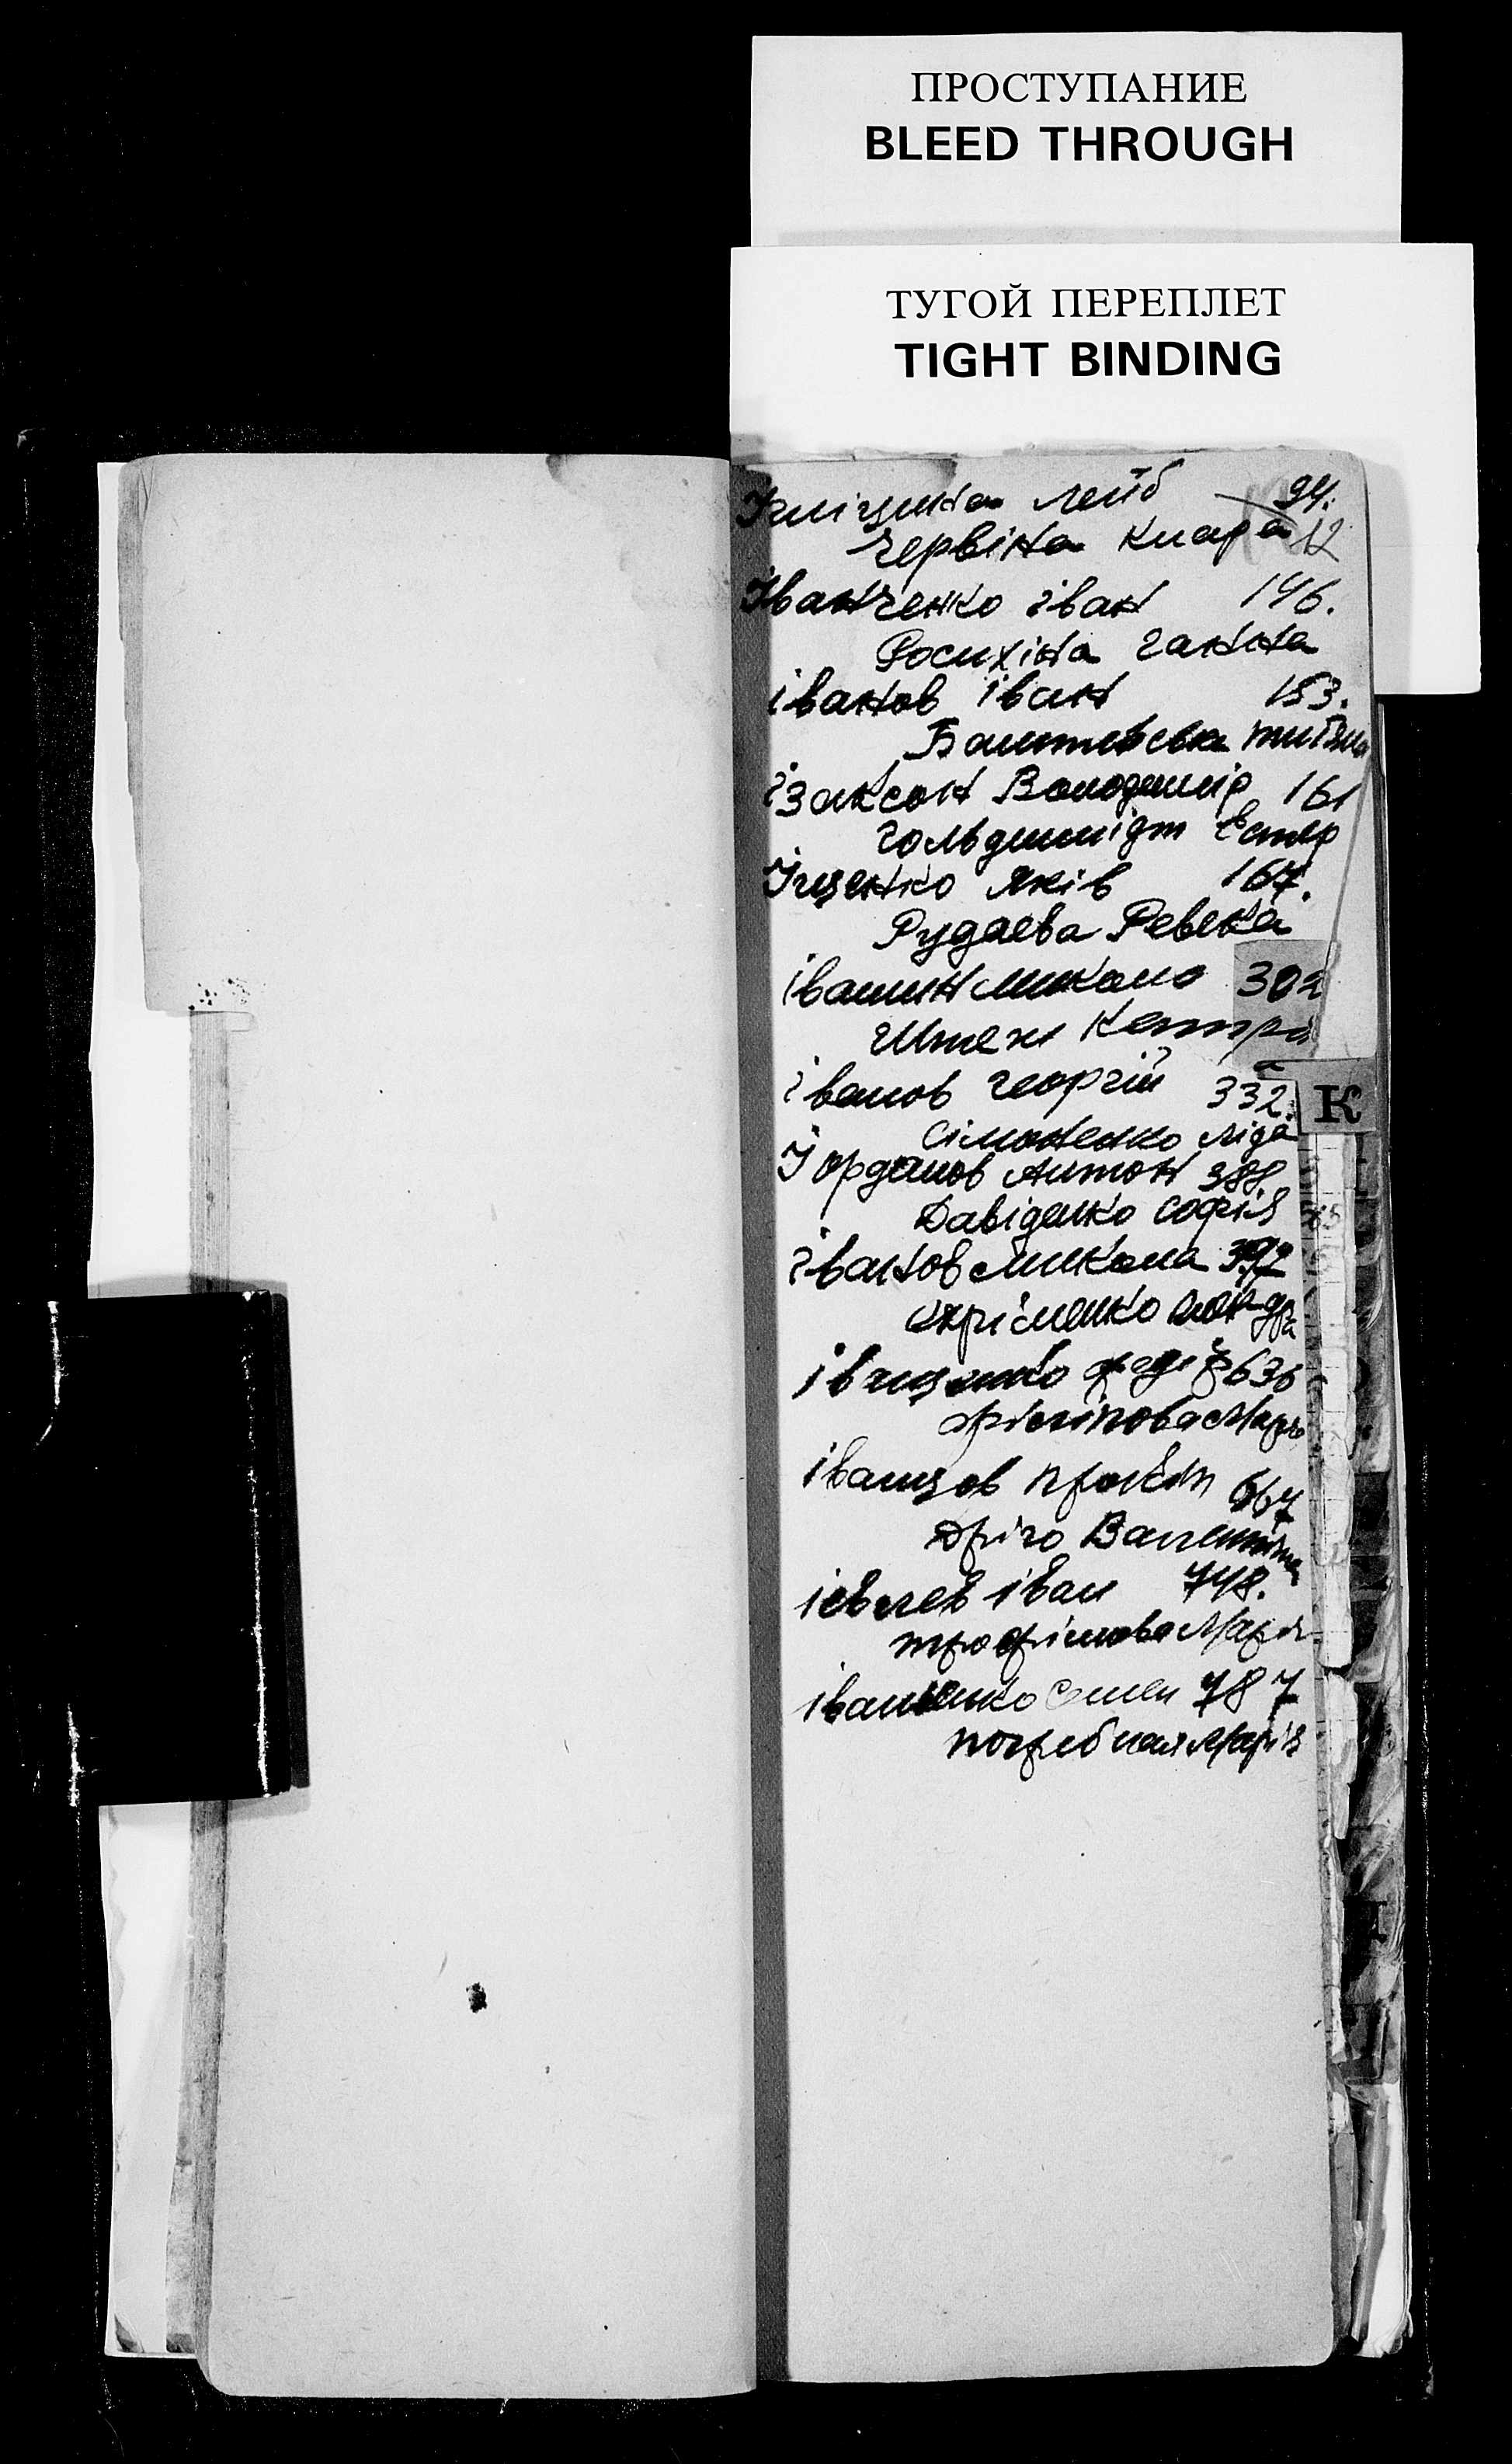 ПРОСТУПАНИЕ
BLEED THROUGH
ТУГОЙ ПЕРЕПЛЕТ
TIGHT BINDING
Лейб 94.
Червіна Клара 12
Іванченко Іван 146.
Росихіна Ганна
Іванов Іван 153.
Ізаксон Володимир 161
Гольдшмідт Естер
Іщенко Яків 167.
Рудаева Ревека
Івашин Микола 302
Штехи
Іванов Георгій 332.
Сімоненко Ліда
К
Іорданов Антон 388
Давіденко Софія
Іванов Микола 392
636
Філіпова Марія
Іванцов Прокіп 667
Дріго Валентина
Іевлев Іван 748.
Трофімова Марія
Іваненко Семен 787
Погребная Марія